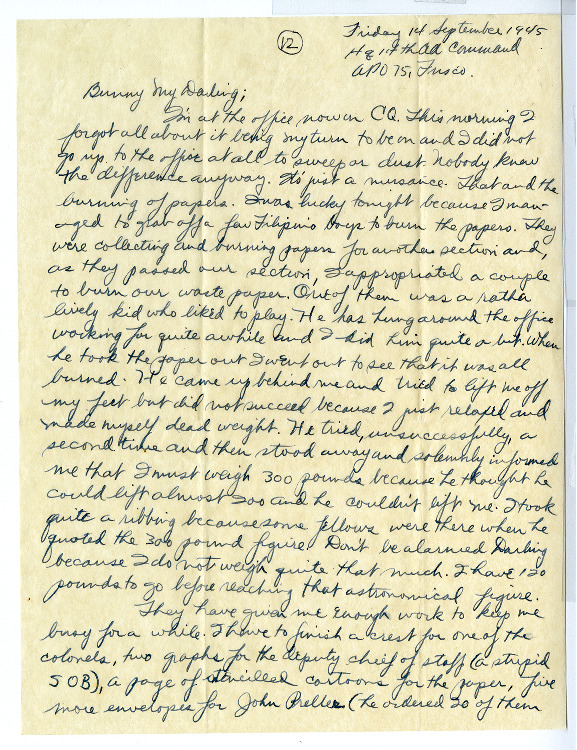 12
Friday 14 September 1945
Hq 14th AA Command
APO 75, Frisco.
Bunny My Darling;
I'm at the office now on CQ. This morning I
forgot all about it being my turn to be on and I did not
go up to the office at all to sweep or dust. Nobody knew
the difference anyway. It's just a nuisance. That and the
burning of papers. I was lucky tonight because I man-
aged to grab off a few Filipino boys to burn the papers. They
were collecting and burning papers for another section and,
as they passed our section, I appropriated a couple
to burn our waste paper. One of them was a rather
lively kid who liked to play. He has hung around the office
working for quite awhile and I kid him quite a bit. When
he took the paper out I went out to see that it was all
burned. He came up behind me and tried to lift me off
my feet but did not succeed because I just relaxed and
made myself dead weight. He tried, unsuccessfully, a
second time and then stood away and solemnly informed
me that I must weigh 300 pounds because he thought he
could lift almost 200 and he couldn't lift me. I took
quite a ribbing because some fellows were there when he
quoted the 300 pound figure. Don't be alarmed Darling
because I do not weigh quite that much. I have 120
pounds to go before reaching that astronomical figure.
They have given me enough work to keep me
busy for a while. I have to finish a crest for one of the
colonels, two graphs for the deputy chief of staff (a stupid
SOB), a page of stencilled cartoons for the paper, five
more envelopes for John (he ordered 20 of them